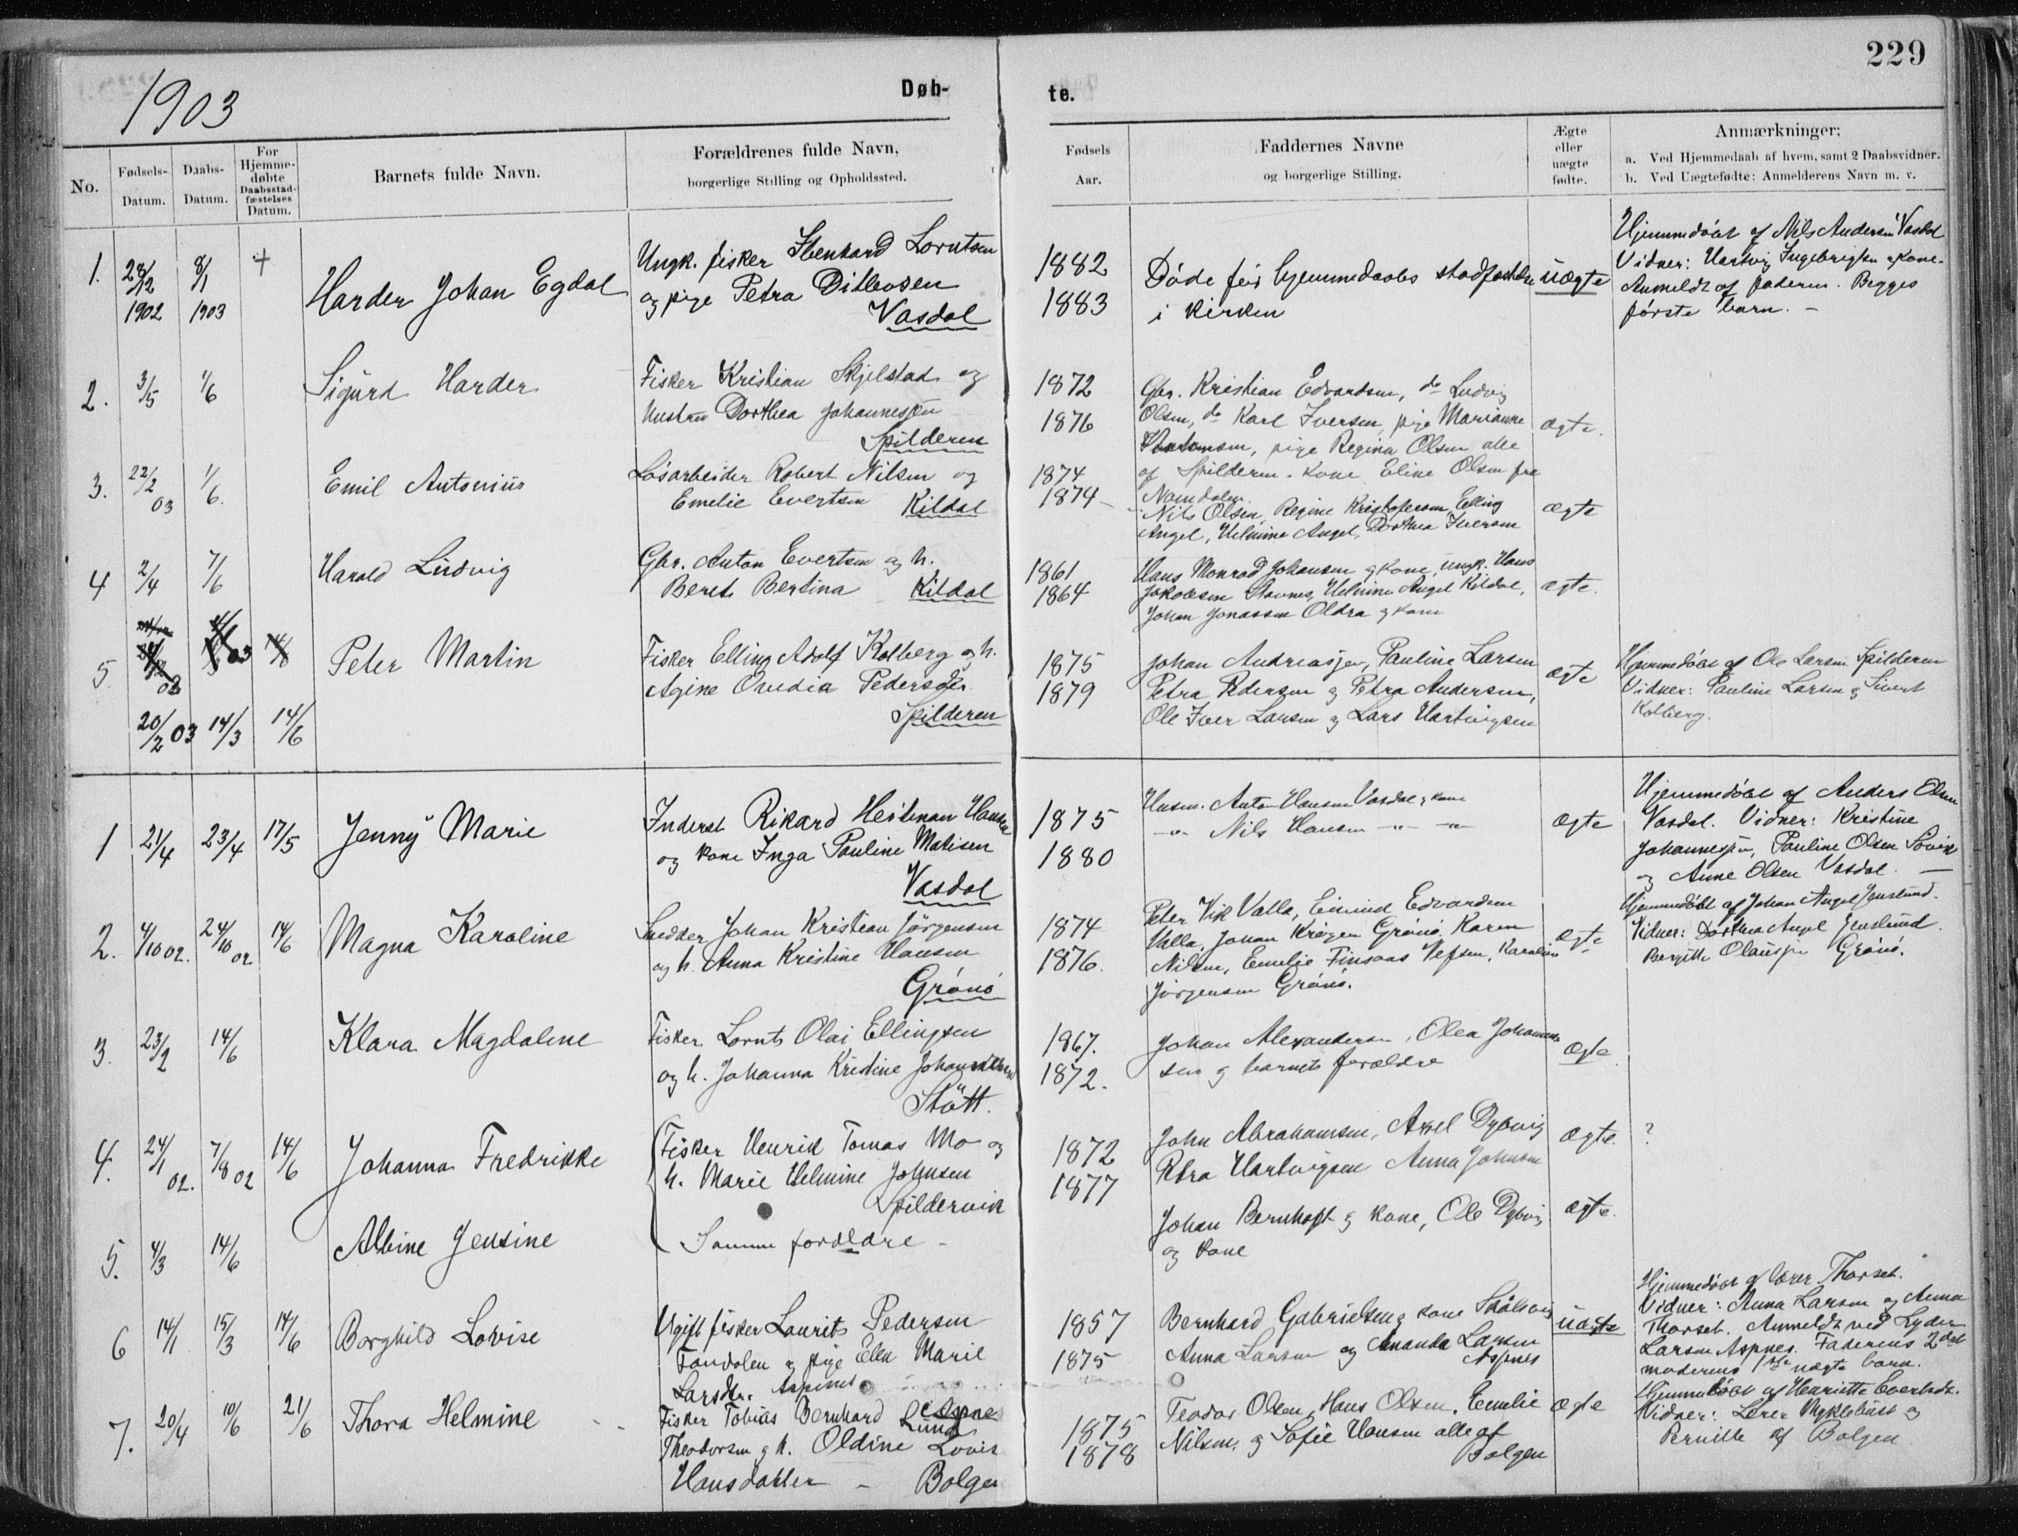 229
1903
Døb-
te.
No.
Fødsels-
Datum.
Daabs-
Datum.
For
Hjemme-
døbte
Daabsstad-
fæstelses
Datum.
Barnets fulde Navn.
Forældrenes fulde Navn,
borgerlige Stilling og Opholdssted.
Fødsels
Aar.
Faddernes Navne
og borgerlige Stilling.
Ægte
eller
uægte
fødte.
Anmærkninger:
a. Ved Hjemmedaab af hvem, samt 2 Daabsvidner.
b. Ved Uægtefødte: Anmelderens Navn m. v.
1. 28/12 1902 8/1 1903 +
Harder Johan Egdal
Ungk. fisker Lorntsen
og pige Petra Ditlevsen
Vasdal
1882
1883
Døde før hjemmedaabs
i kirken
uægte
Hjemmedøbt af Nils Andersen Vasdal
Vidner: Hartvig Ingebrigtsen & kone.
Anmeldt af faderen. Begges
første barn. -
2. 3/5 1/6
Sigurd Harder
Fisker Kristian Skjelstad og
Hustru Dorthea Johannesen
Spilderen
1872
1876
Gbr. Kristian Edvardsen, do Ludvig
Olsen, do Karl Iversen, pige Marianne
pige Regina Olsen alle
af Spilderen. Kone Eline Olsen fra
Namdalen.
ægte.
3. 22/2 03 1/6.
Emil Antonius
Løsarbeider Robert Nilsen og
Emelie Evertsen Kildal
1874
1874
Nils Olsen, Regine Kristofersen, Elling
Angel, Helmine Angel, Dorthea Iversen
ægte
4 2/4 7/6
Harald Ludvig
Gbr. Anton Evertsen og h.
Beret Bertina Kildal
1861
1864
Hans Monrad Johansen & kone, ungk. Hans
Jakobsen Stavnes, Helmine Angel Kildal,
Johan Jonassen Oldra & kone
ægte.
5. 20/2 03 14/3 14/6
Peter Martin
Fisker Elling Adolf Kolberg og h.
Agine Pedersen.
Spilderen
1875
1879
Johan Andreasen, Pauline Larsen
Petra Pedersen & Petra Andersen,
Ole Iver Larsen & Lars Hartvigsen
ægte
Hjemmedøbt af Ole Larsen Spilderen
Vidner: Pauline Larsen & Sivert
Kolberg.
1 21/4 23/4 17/5
Jenny Marie
Inderst Rikard Heitman Hansen
og kone Inga Pauline Matisen
Vasdal
1875
1880
Husm. Anton Hansen Vasdal & kone
-"- Nils Hansen -"- -"-
ægte
Hjemmedøbt af Anders Olsen
Vasdal. Vidner: Kristine
Johannesen, Pauline Olsen Sørvik
og Anne Olsen Vasdal. -
2. 4/10 02. 24/10 02 14/6
Magna Karoline
Snedker Johan Kristian Jørgensen
og h. Anna Kristine Hansen
Grønø
1874
1876.
Peter Vik Valla, Edvardsen
Valla, Johan Krøgen Grønø, Karen
Nilsen, Emelie Finsaas Vefsen, Karoline
Jørgensen Grønø.
ægte
Hjemmedøbt af Johan Angel Jenslund.
Vidner: Dorthea Angel Jenslund
Bergitte Olausen Grønø.
3. 23/2 14/6
Klara Magdalene
Fisker Lornts Olai Ellingsen
og h. Johanna Kristine Johannesen
Støtt.
1867.
1872.
Johan Alexandersen, Olea Johannes-
sen & barnets forældre
ægte.
4. 24/1 02. 7/8 02 14/6
Johanna Fredrikke
Fisker Henrik Tomas Mo og
h. Marie Helmine Johnsen
Spildervik
1872
1877
John Abrahamsen, Axel Dybvig
Petra Hartvigsen Anna Johnsen
ægte. ?
5. 4/3 14/6
Albine Jensine
Samme forældre -
Johan Bernhoft & kone, Ole Dybvig
og kone
ægte.
6 14/1 15/3 14/6
Borghild Lovise
Ugift fisker Laurits Pedersen
& pige Elen Marie
Larsdtr. Aspnes
1857
1875
Bernhard Gabrielsen & kone
Anna Larsen og Amanda Larsen
Aspnes
uægte
Hjemmedøbt af lærer Thorset.
Vidner: Anna Larsen og Anna
Thorset. Anmeldt ved Lyder
Larsen Aspnes. Faderens 2det
moderens 1ste uægte barn.
7. 20/4 10/6 21/6
Thora Helmine
Fisker Tobias Bernhard Lund
Theodorsen & h. Oldine Lovise
Hansdatter - Bolgen
1875
1878
Teodor Olsen, Hans Olsen, Emelie
Nilsen, & Sofie Hansen alle af
Bolgen
ægte
Hjemmedøbt af Henriette Evertsdtr.
Vidner: Lærer Myklebust og
Pernille af Bolgen